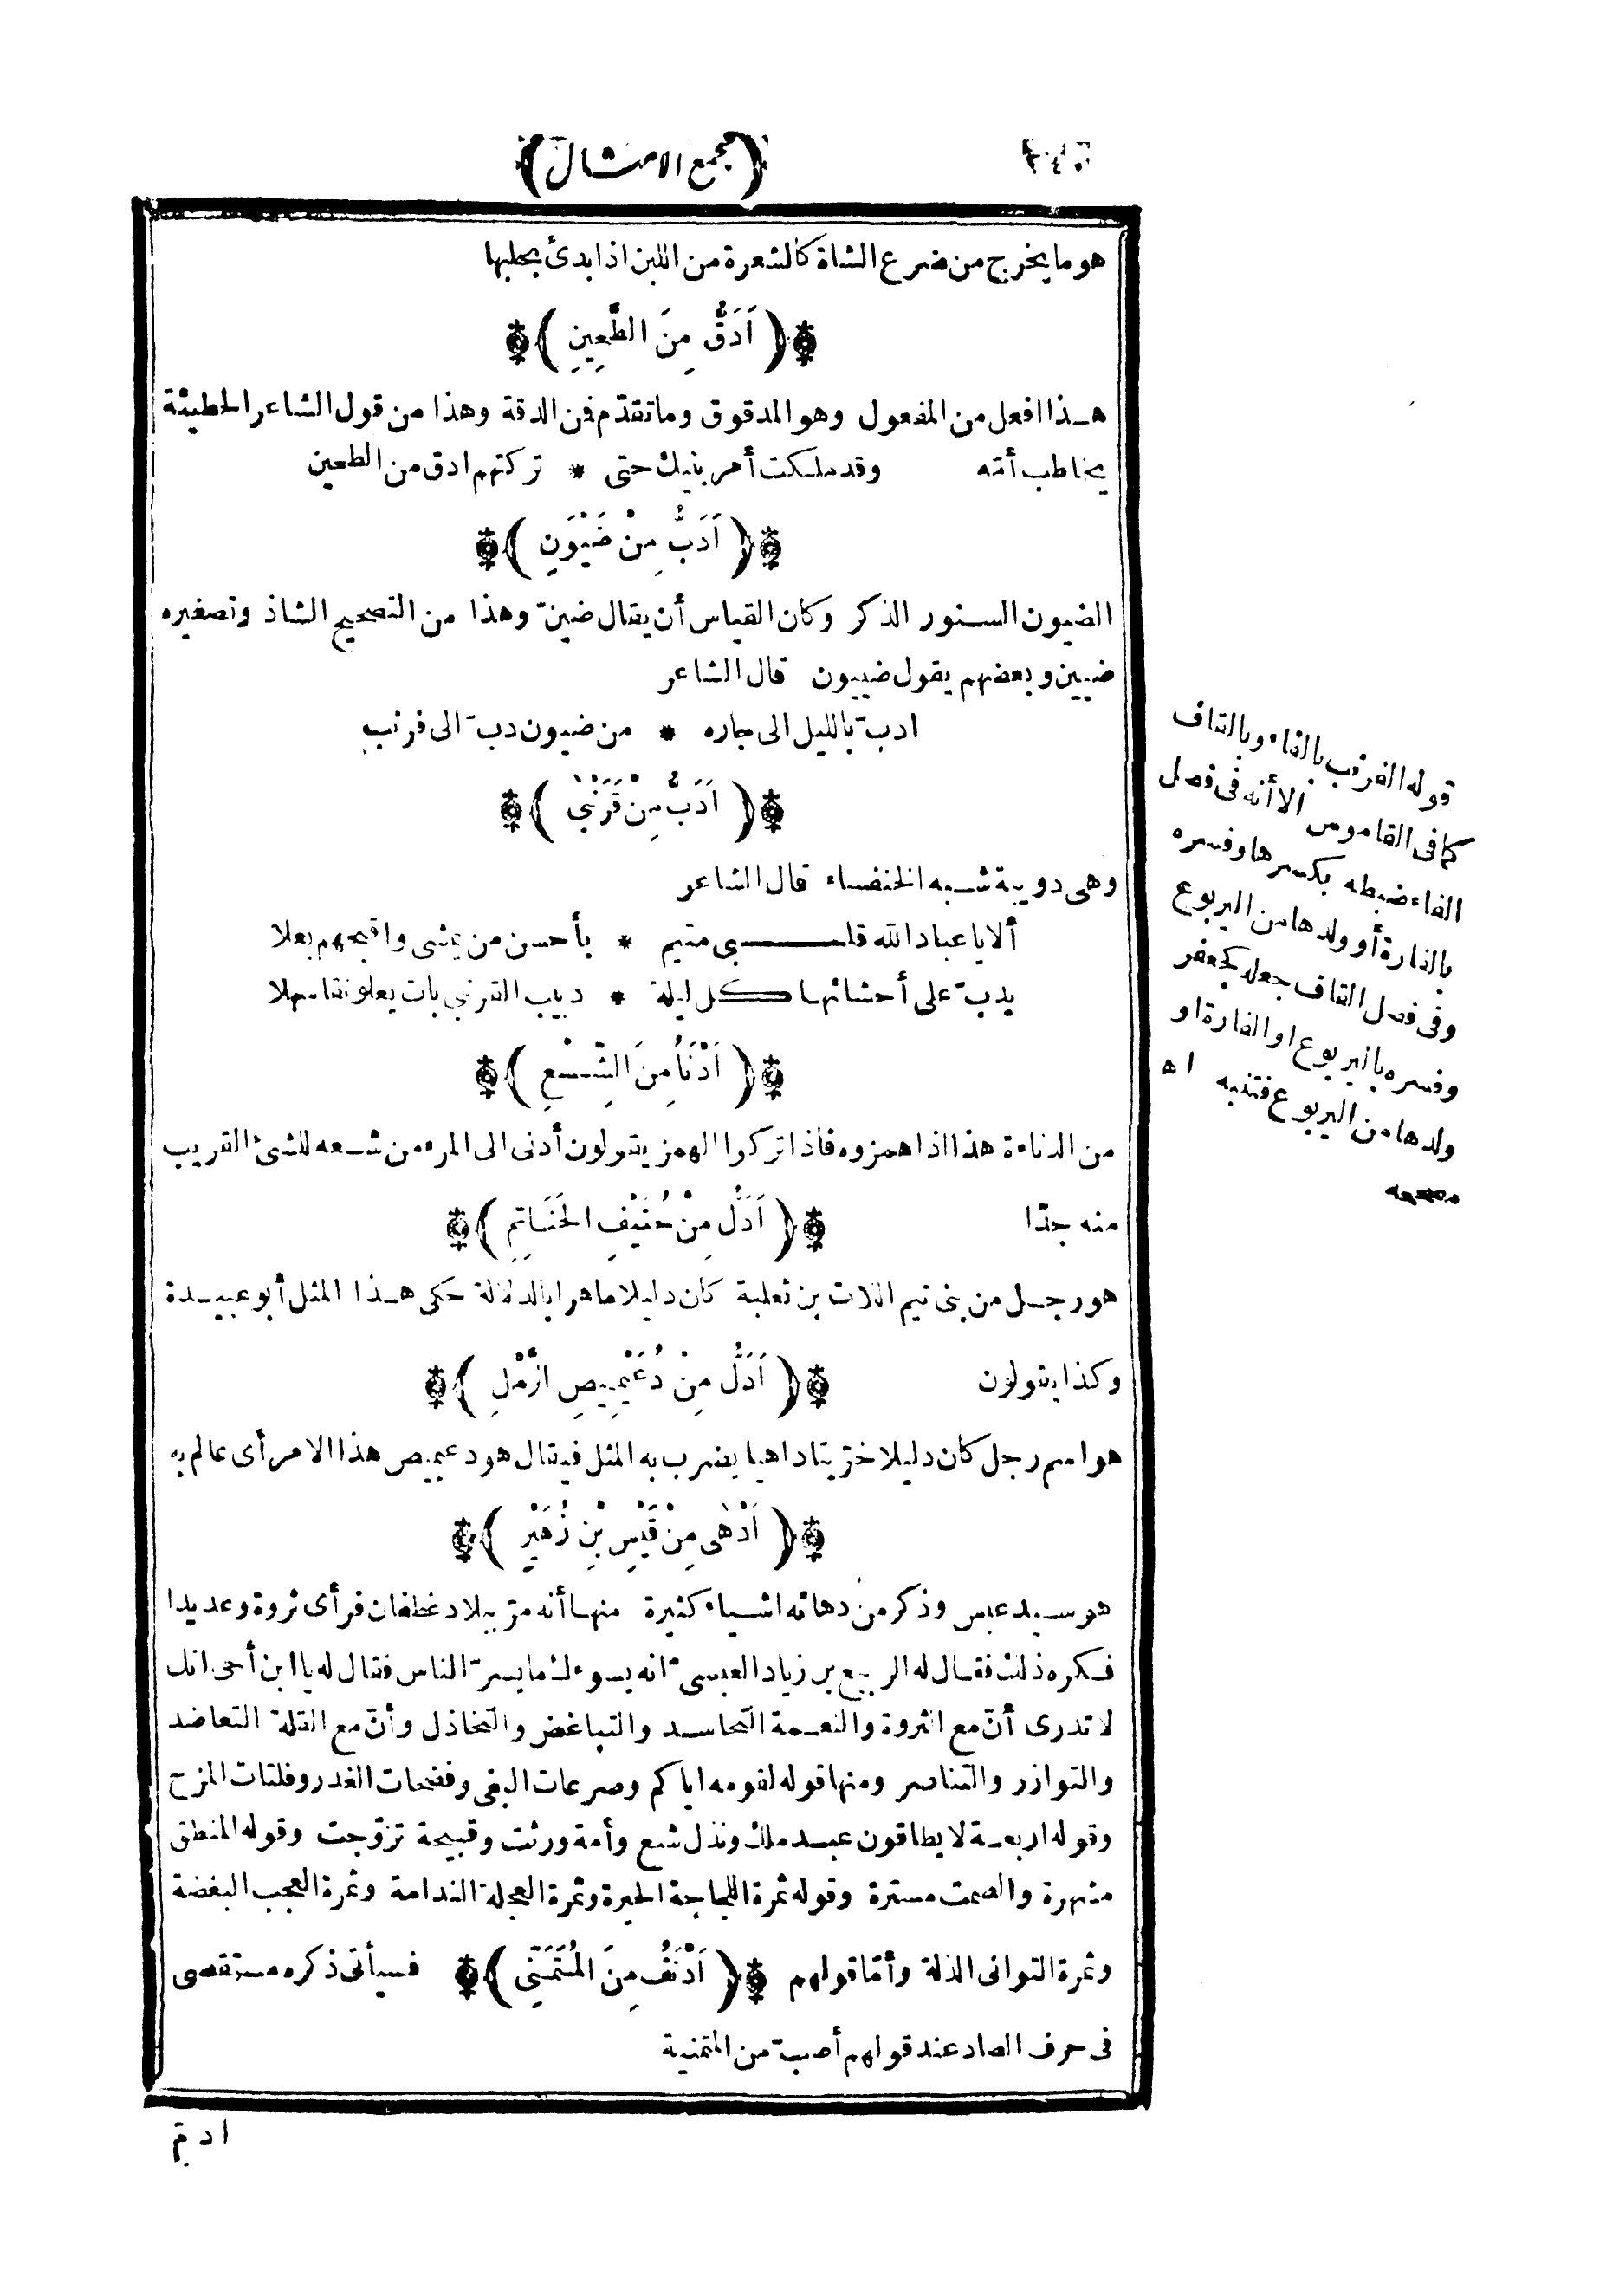 (مجمع الامثال)
هو ما يخرج من ضرع الشاة كالشعرة من اللبن اذا بدئ بحلبها
(اَدَقُّ مِنَ الطَّحِينِ)
هذا افعل من المفعول وهو المدقوق وما تقدّم فمن الدقة وهذا من قول الشاعر الحطيئة
يخاطب أمّه وقد ملكت أمر بنيك حتى * تركتهم ادق من الطحين
(اَدَبُّ مِنْ ضَيْوَنٍ)
الضيون السنور الذكر وكان القياس أن يقال ضينّ وهذا من التصحيح الشاذ وتصغيره
ضيين وبعضهم يقول ضييون قال الشاعر
ادبّ بالليل الى جاره * من ضيون دبّ الى فرنب
(اَدَبُّ مِنْ قَرَنْبَىٰ)
وهى دويبة شبه الخنفساء قال الشاعر
ألا يا عباد الله قلبى متيم * بأحسن من يمشى واقبحهم بعلا
يدبّ على أحشائها كل ليلة * دبيب القرنبى بات يعلو نقا سهلا
(اَدْنَأُ مِنَ الشِّسْعِ)
من الدناءة هذا اذا همزوه فاذا تركوا الهمز يقولون أدنى الى المرء من شسعه للشئ القريب
منه جدّا (اَدَلُّ مِنْ حُنَيْفِ الحَنَاتِمِ)
هو رجل من بنى تيم اللات بن ثعلبة كان دليلا ماهرا بالدلالة حكى هذا المثل أبو عبيدة
وكذا يقولون (اَدَلُّ مِنْ دُعَيْمِيصِ الرَّمْلِ)
هو اسم رجل كان دليلا خرّيتا داهيا يضرب به المثل فيقال هو دعيميص هذا الامر أى عالم به
(اَدْهَى مِنْ قَيْسِ بْنِ زُهَيْرٍ)
هو سيد عبس وذكر من دهائه اشياء كثيرة منها أنه مرّ ببلاد غطفان فرأى ثروة وعديدا
فكره ذلك فقال له الربيع بن زياد العبسىّ انه يسوءك ما يسرّ الناس فقال له يا ابن أخى انك
لا تدرى أنّ مع الثروة والنعمة التحاسد والتباغض والتخاذل وأنّ مع القلة التعاضد
والتوازر والتناصر ومنها قوله لقومه اياكم وصرعات البغى وفضحات الغدر وفلتات المزح
وقوله اربعة لا يطاقون عبد ملك ونذل شبع وأمة ورثت وقبيحة تزوّجت وقوله المنطق
مشهرة والصمت مسترة وقوله ثمرة اللجاجة الحيرة وثمرة العجلة الندامة وثمرة العجب البغضة
وثمرة التوانى الذلة وأمّا قولهم (اَدْنَفُ مِنَ المُتَمَنِّى) فسيأتى ذكره مستقصى
فى حرف الصاد عند قولهم أصبّ من المتمنية
قوله الفرنب بالفاء وبالقاف
كما فى القاموس الا أنه فى فصل
الفاء ضبطه بكسرها وفسره
بالفارة أو ولدها من اليربوع
وفى فصل القاف جعله كجعفر
وفسره باليربوع او الفارة او
ولدها من اليربوع فتنبه اه
مصححه